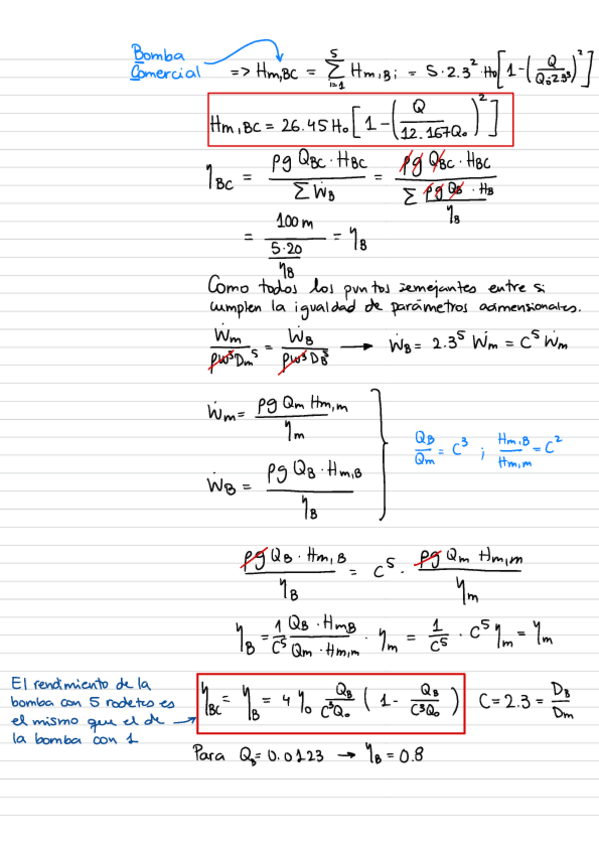 Bomba
Comercial => Hm,BC = Σ(i=1, 5) Hm,Bi = 5·2.3² · H₀[1-(Q/(Q₀·2.3³))²]
Hm,BC = 26.45H₀[1-(Q/(12.167Q₀))²]
ηBC = (ρg QBC · HBC)/(Σ ẆB) = (ρg QBC · HBC)/(Σ (ρg QB · HB)/ηB)
= 100m/((5·20)/ηB) = ηB
Como todos los puntos semejantes entre si
cumplen la igualdad de parámetros adimensionales.
Ẇm/(ρω³Dm⁵) = ẆB/(ρω³DB⁵) → ẆB = 2.3⁵ Ẇm = C⁵ Ẇm
Ẇm = (ρg Qm Hm,m)/ηm
QB/Qm = C³ ; Hm,B/Hm,m = C²
ẆB = (ρg QB · Hm,B)/ηB
(ρg QB · Hm,B)/ηB = C⁵ · (ρg Qm Hm,m)/ηm
ηB = (1/C⁵) (QB · HmB)/(Qm · Hm,m) · ηm = (1/C⁵) · C⁵ ηm = ηm
El rendimiento de la
bomba con 5 rodetes es
el mismo que el de
la bomba con 1
ηBC = ηB = 4 η₀ (QB/(C³Q₀)) (1 - QB/(C³Q₀)) C = 2.3 = DB/Dm
Para QB = 0.0123 → ηB = 0.8